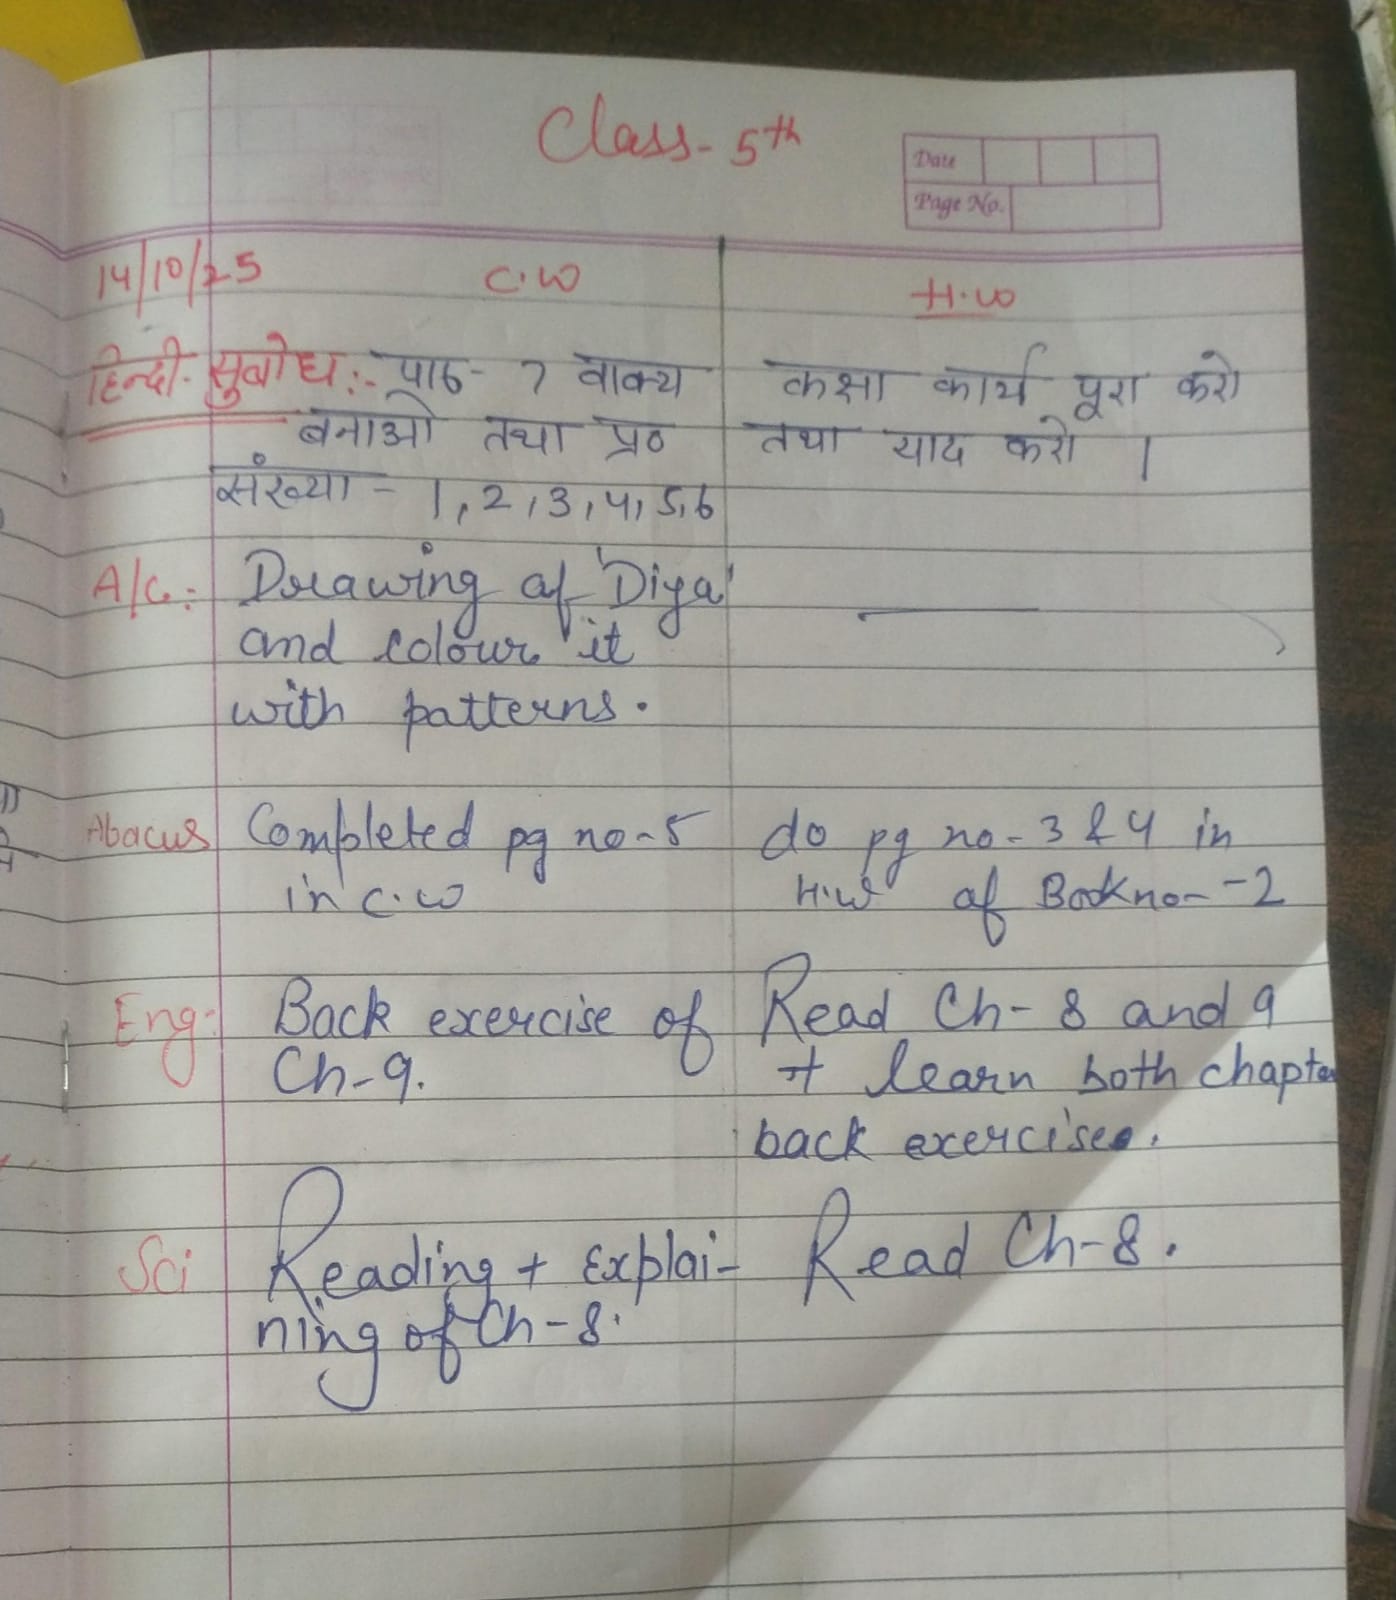 Class - 5th
Date
Page No.
14/10/25 C.W H.W
हिन्दी- सुबोध:- पाठ- 7 वाक्य कक्षा कार्य पूरा करो
बनाओ तथा प्र० तथा याद करो ।
संख्या - 1, 2, 3, 4, 5, 6
A/C:- Drawing of 'Diya'
and colour it
with patterns.
Abacus Completed pg no-5 do pg no-3 & 4 in
in C.W H.W of Book no--2
Eng:- Back exercise of Read Ch-8 and 9
Ch-9. + learn both chapter
back exercises.
Sci Reading + Explai- Read Ch-8.
ning of Ch-8.